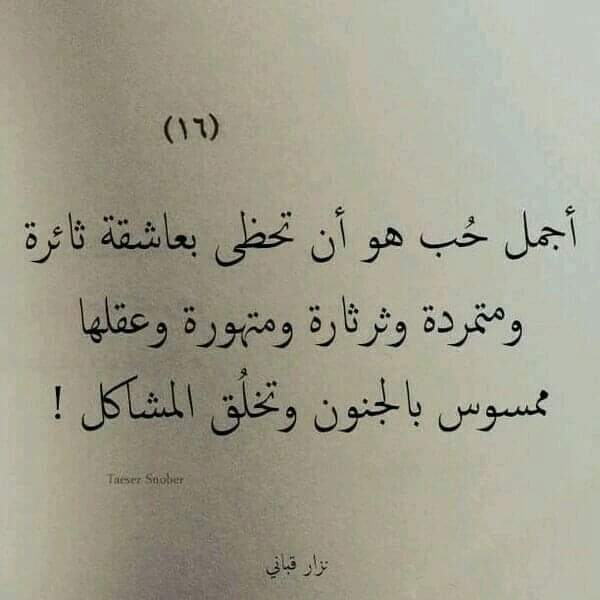 (١٦)
أجمل حُب هو أن تحظى بعاشقة ثائرة
ومتمردة وثرثارة ومتهورة وعقلها
ممسوس بالجنون وتخلُق المشاكل !
Taeser Snober
نزار قباني